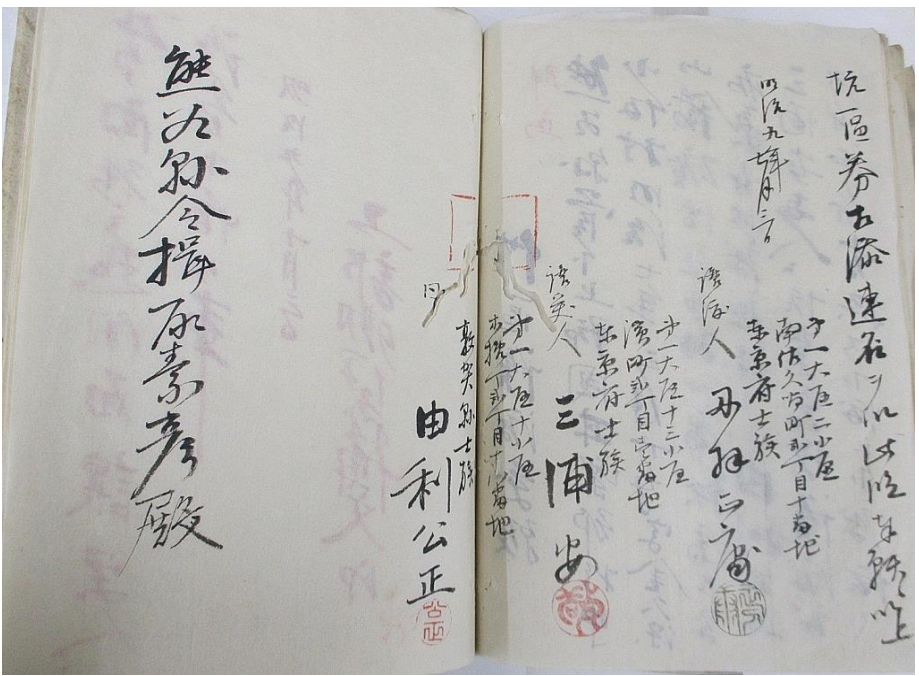 坑區券相添連名ヲ以此段奉願以上
明治九年七月三日
第一大区二小区
南佐久間町弐丁目十番地
東京府士族
譲渡人 丹羽正庸
第一大区十三小区
濱町弐丁目壱番地
東京府士族
譲受人 三浦安
第一大区十小区
木挽町 丁目十 番地
敦賀縣士族
同 由利公正
公正
熊谷縣令楫取素彦殿